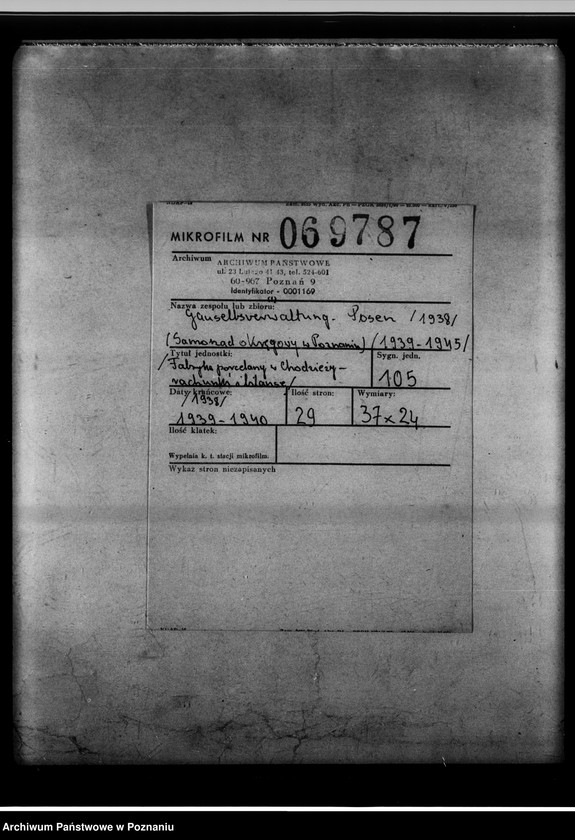 MIKROFILM NR 069787
Archiwum ARCHIWUM PAŃSTWOWE
ul. 23 Lutego 41 43, tel. 524-601
60-967 Poznań 9
Identyfikator - 0001169
Nazwa zespołu lub zbioru:
Gauselbsverwaltung. Posen /1938/
(Samorząd okręgowy w Poznaniu) /1939-1945/
Tytuł jednostki: Sygn. jedn.
/Fabryka porcelany w Chodzieży-
rachunki i bilanse/ 105
Daty krańcowe: Ilość stron: Wymiary:
/1938/
1939-1940 29 37x24
Ilość klatek:
Wypełnia k. t. stacji mikrofilm.
Wykaz stron niezapisanych
Archiwum Państwowe w Poznaniu